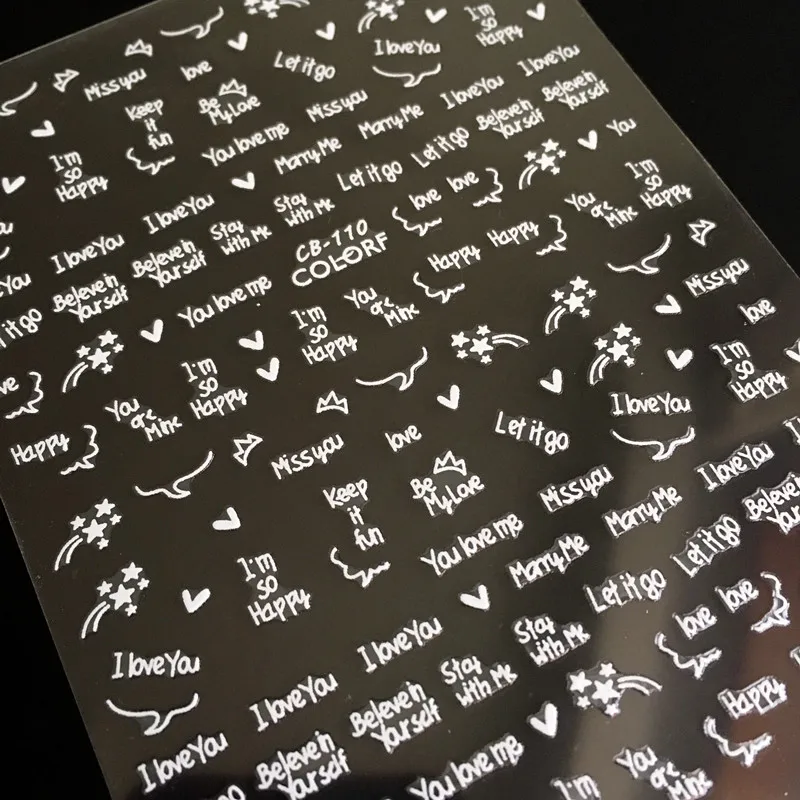 I'm
so
Happy
I love You
Let it go
love
Miss you
I love You
I love You
Miss you
Be
My Love
Keep
it
fun
Beleve in
Yourself
Beleve in
Yourself
Marry Me
You love me
You
Let it go
Let it go
Marry Me
I'm
so
Happy
I'm
so
Happy
You
are
Mine
love
love
Stay
with Me
Stay
with Me
I love You
I love You
Happy
Happy
CB-110
COLORF
Beleve in
Yourself
Beleve in
Yourself
Miss you
love
You
are
Mine
You love me
it go
I'm
so
Happy
I'm
so
Happy
I'm
so
Happy
I love You
Let it go
love
Miss you
You
are
Mine
Happy
I love You
Miss you
Be
My Love
Keep
it
fun
Marry Me
You love me
Let it go
Marry Me
I'm
so
Happy
Let it go
love
love
Stay
with Me
Stay
with Me
I love You
I love You
I love You
Happy
Beleve in
Yourself
Beleve in
Yourself
I love You
You love me
You
are
Mine
I'm